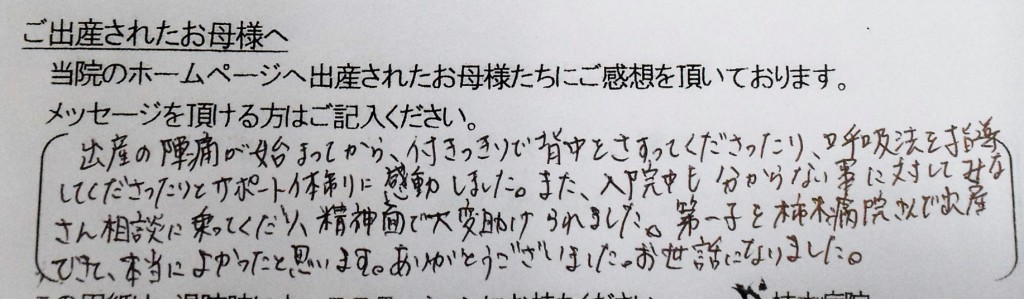 ご出産されたお母様へ
当院のホームページへ出産されたお母様たちにご感想を頂いております。
メッセージを頂ける方はご記入ください。
出産の陣痛が始まってから、付きっきりで背中をさすってくださったり、呼吸法を指導
してくださったりとサポート体制に感動しました。また、入院中も分からない事に対してみな
さん相談に乗ってくださり、精神面で大変助けられました。第一子を柿木病院さんで出産
できて、本当によかったと思います。ありがとうございました。お世話になりました。